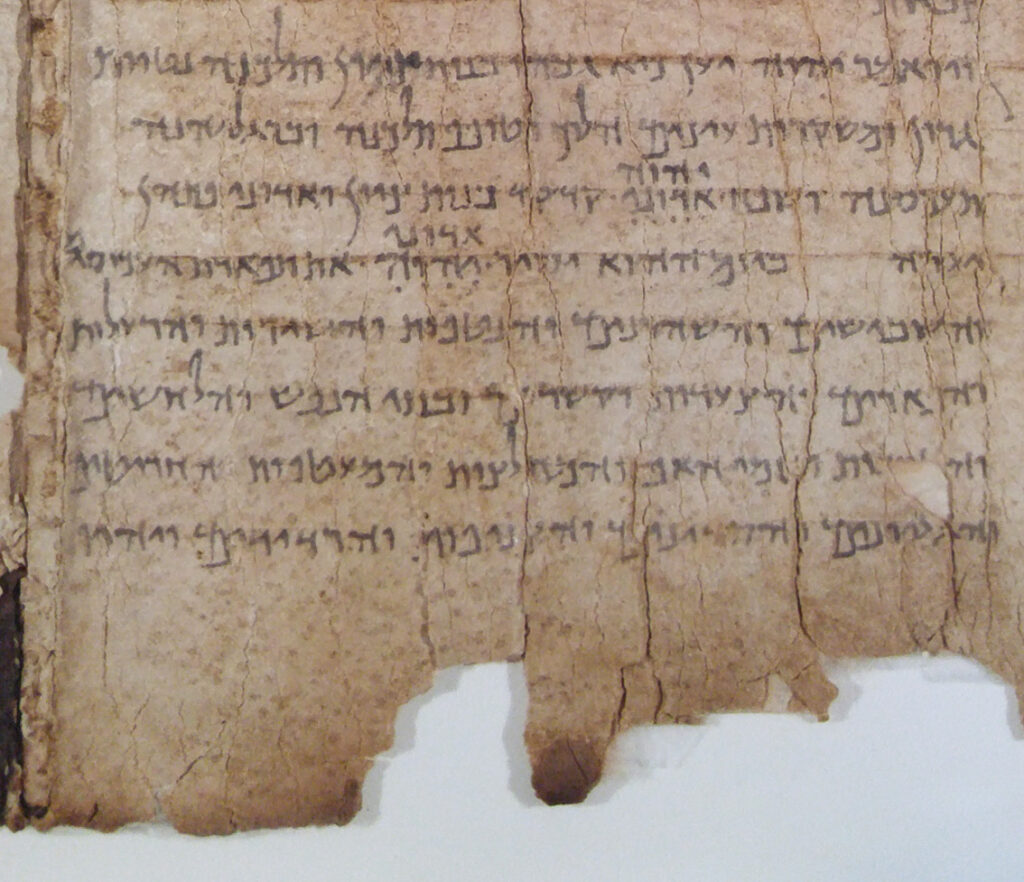 צבאות
ויואמר יהוה יען כיא גבהו בנות ציון ותלכנה נטוות
גרון ומשקרות עיניהן הלוך וטופף תלכנה וברגליהנה
יהוה
תעכסנה ושפח אדוני קדקד בנות ציון ואדוני פתהן
אדוני
יערה ביום ההוא יסיר יהוה את תפארת העכיסים
והשבישים והשהרנים והנטפות והשירות והרעלות
והפארים והצעדות והקשרים ובתי הנפש והלחשים
והטבעות ונזמי האף והמחלצות והמעטפות והחריטים
והגליונים והסדינים והצניפות והרדידים ויהיו